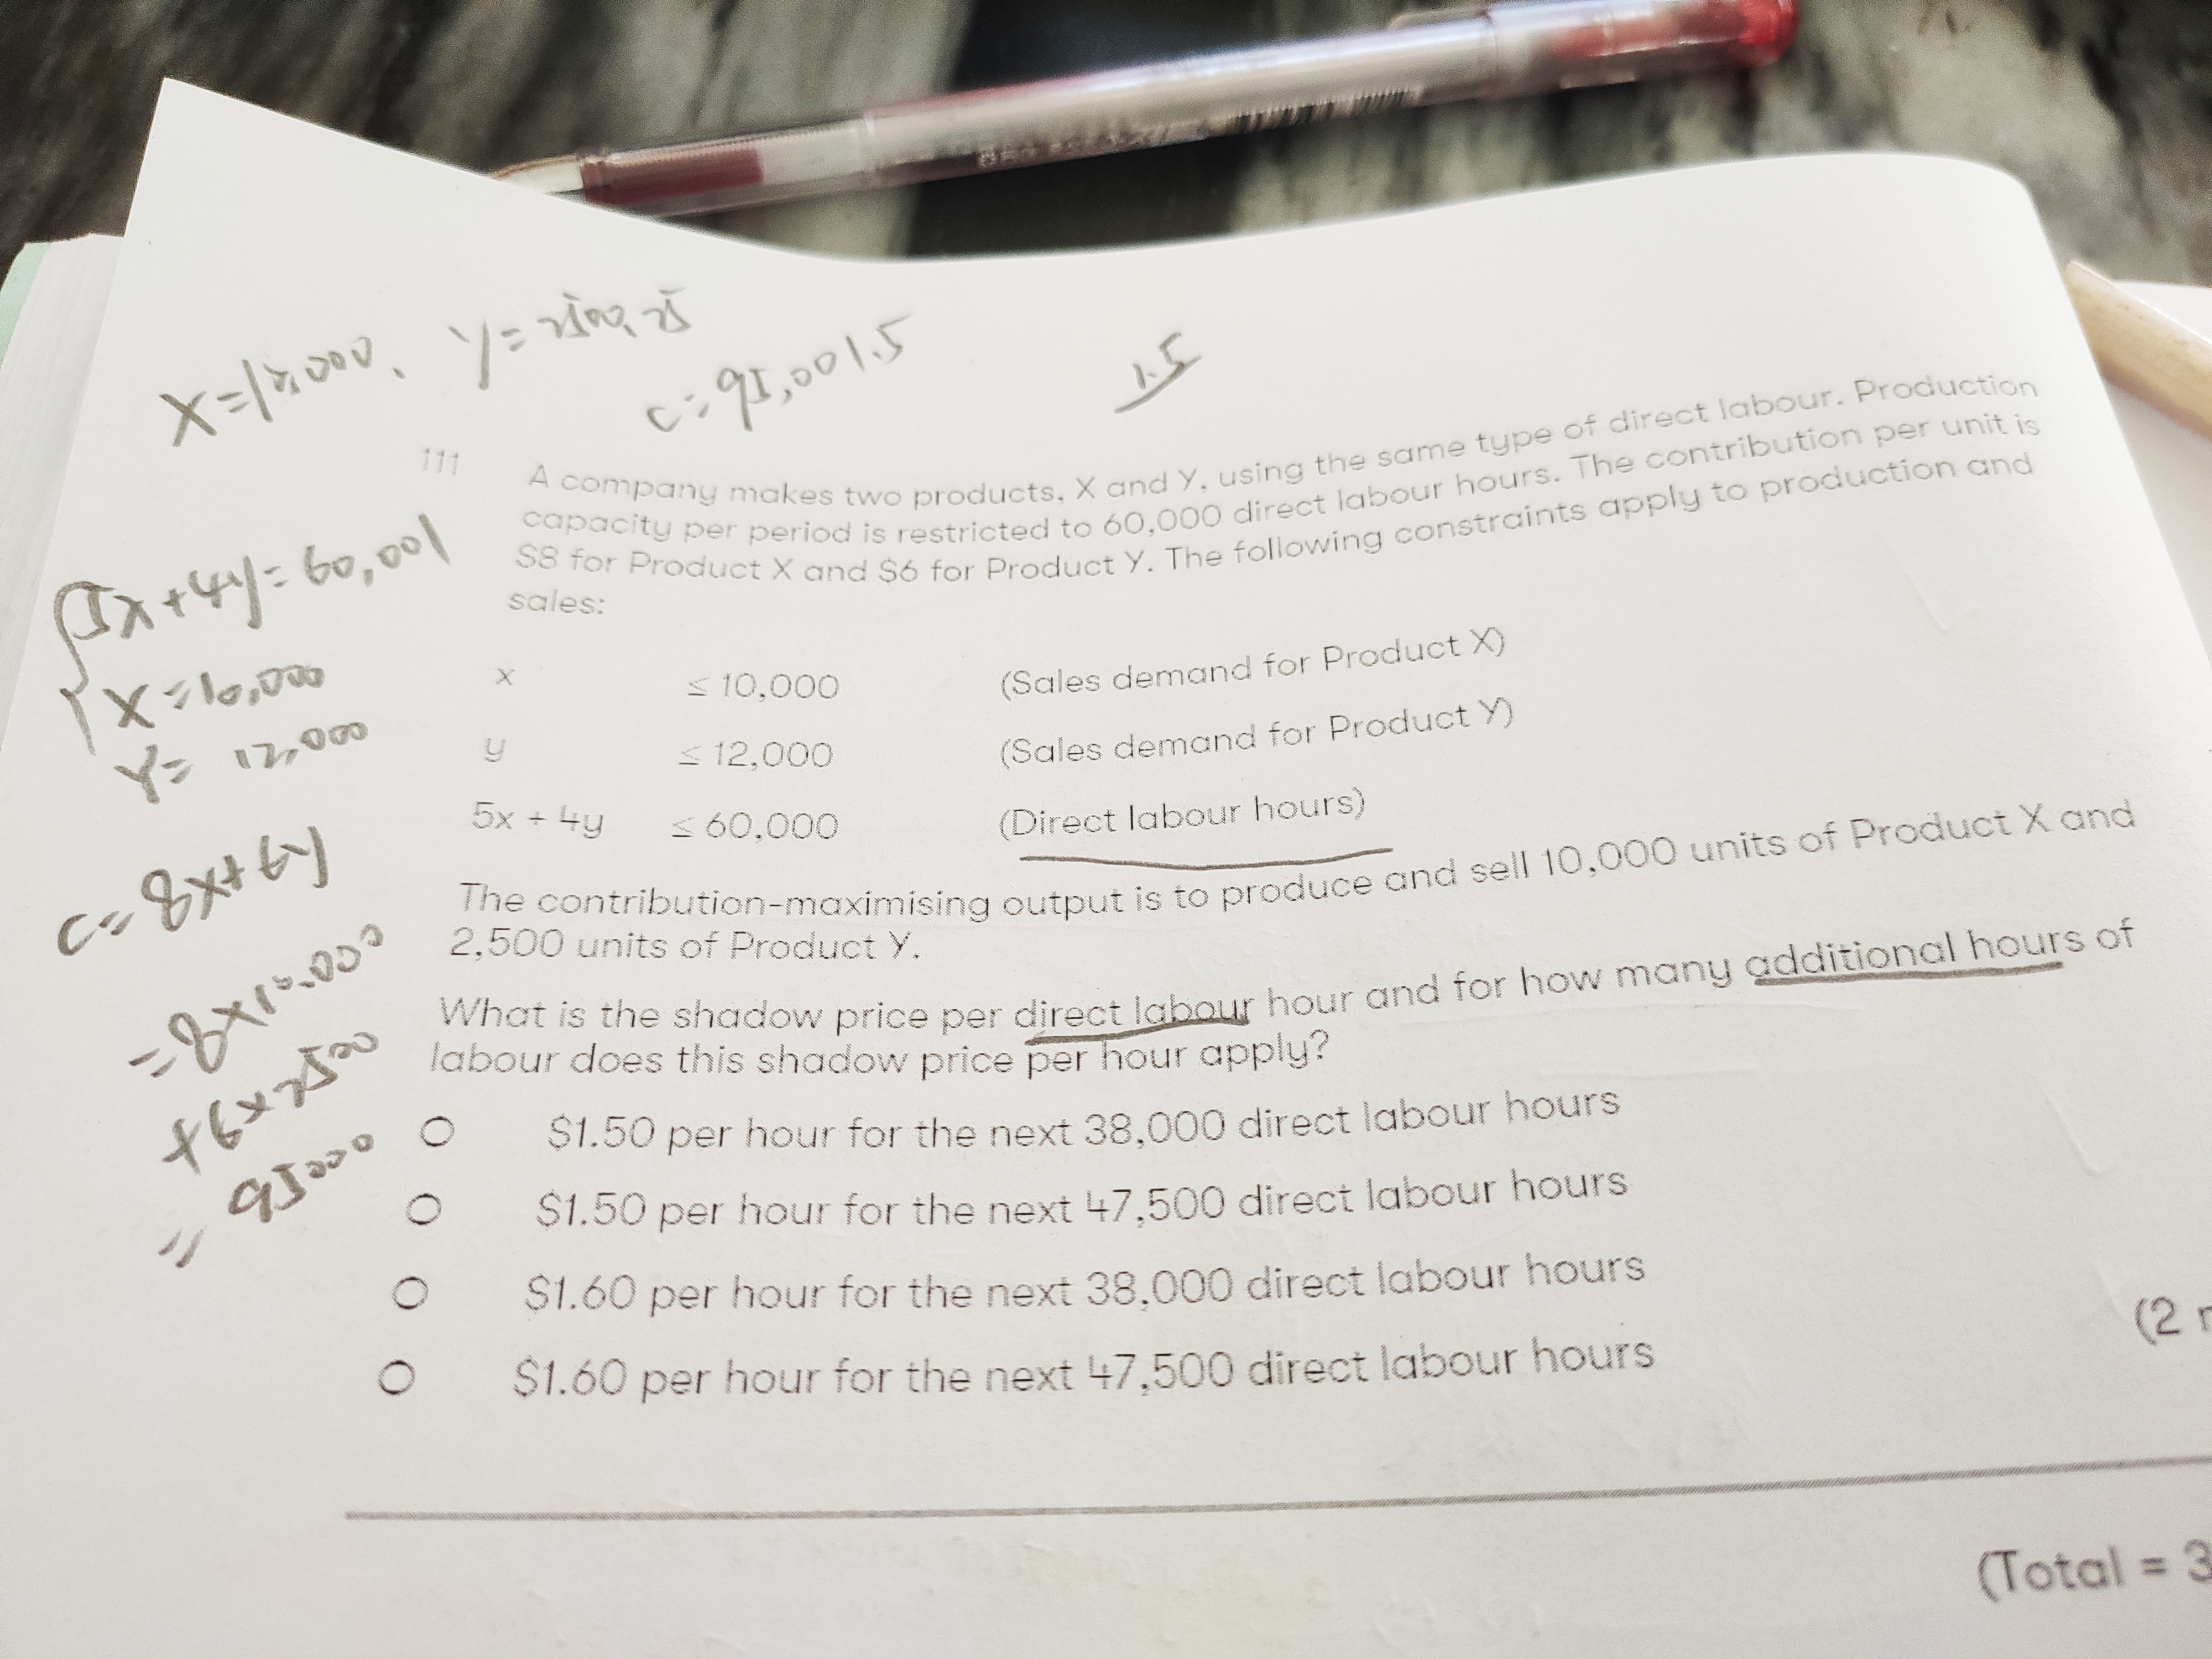 X=10,000, Y=2500.25
C=95,001.5
1.5
111
A company makes two products, X and Y, using the same type of direct labour. Production
capacity per period is restricted to 60,000 direct labour hours. The contribution per unit is
$8 for Product X and $6 for Product Y. The following constraints apply to production and
sales:
x ≤ 10,000 (Sales demand for Product X)
y ≤ 12,000 (Sales demand for Product Y)
5x + 4y ≤ 60,000 (Direct labour hours)
The contribution-maximising output is to produce and sell 10,000 units of Product X and
2,500 units of Product Y.
What is the shadow price per direct labour hour and for how many additional hours of
labour does this shadow price per hour apply?
$1.50 per hour for the next 38,000 direct labour hours
$1.50 per hour for the next 47,500 direct labour hours
$1.60 per hour for the next 38,000 direct labour hours
$1.60 per hour for the next 47,500 direct labour hours
(2
(Total = 3
5x+4y=60,001
X=10,000
Y=12,000
C=8x+6y
=8×10,000
+6×2500
=95000